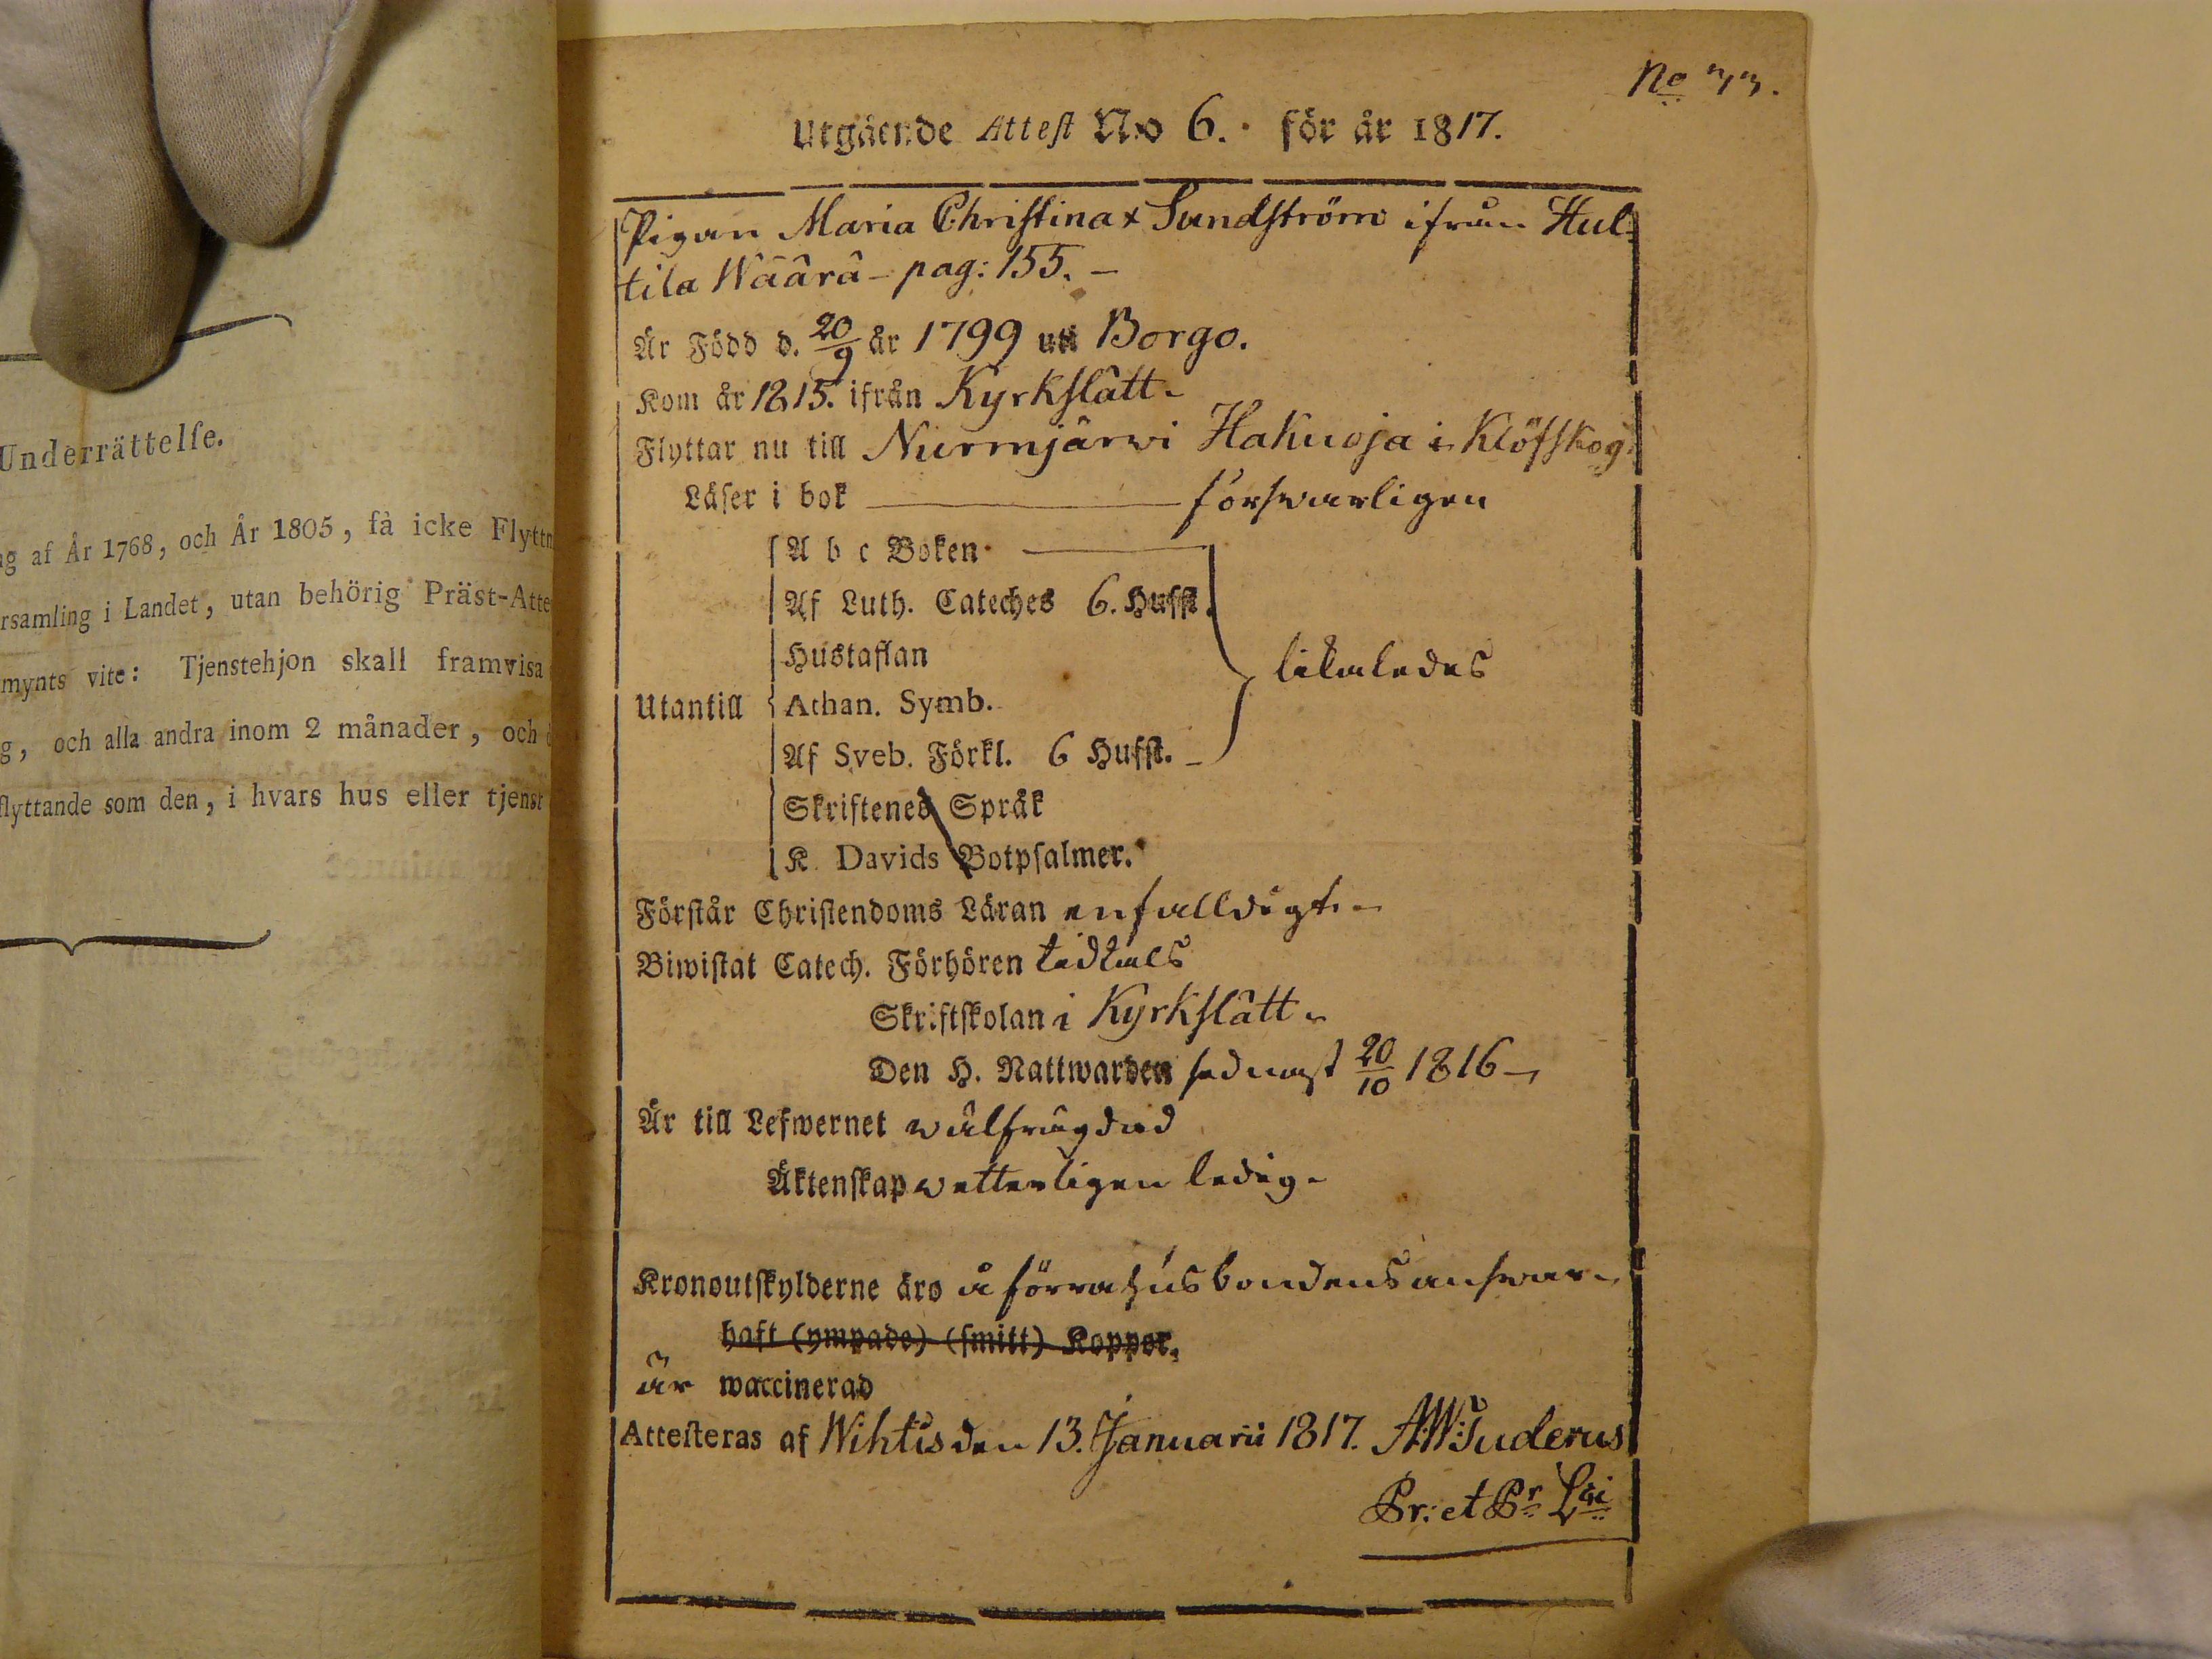 Underrättelse.
af År 1768, och År 1805, få icke
i Landet, utan behörig
vite: Tjenstehjon skall framvisa
och alla andra inom 2 månader, och
som den, i hvars hus eller
No
Utgående Attest N:o 6. för år 1817.
Pigan Maria Christina x Sundström ifrån Hul-
tila Wäärä - pag: 155. -
Är Född d. 20/9 år 1799 uti Borgo.
Kom år 1815. ifrån Kyrkslätt -
Flyttar nu till Nurmjärwi Hakuoja i Klöfskog.
Läser i bok försvarligen
A b c Boken
Af Luth. Cateches 6. Hufst.
Hustaflan
likaledes
Utantill
Athan. Symb.
Af Sveb. Förkl. 6 Hufst. -
Skriftenes Språk
K. Davids Botpsalmer.
Förstår Christendoms Läran enfalldigt. -
Biwistat Catech. Förhören tidtals
Skriftskolan i Kyrkslätt -
Den H. Nattwarden sednast 20/10 1816 -
Är till Lefwernet wälfrägdad
Äktenskap wetterligen ledig -
Kronoutskylderne äro å förra husbondens answar -
haft (ympade) (smitt) Koppor.
är waccinerad
Attesteras af Wihtis den 13. Januarii 1817. A.W: Tuderus
Pr: et Pr